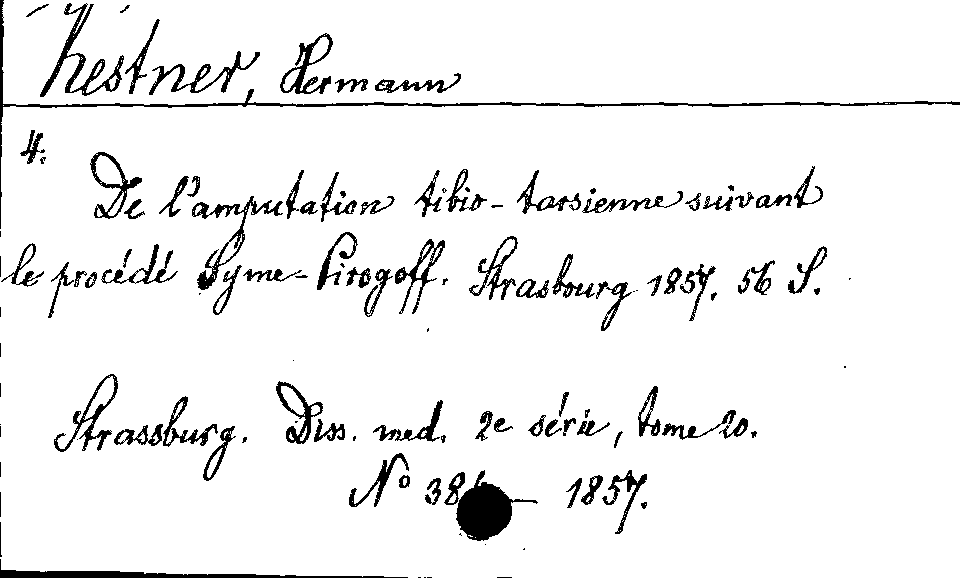 Kestner, Hermann
4.
De l'amputation tibio-tarsienne suivant
le procédé Syme-Pirogoff. Strasbourg 1857. 56 S.
Strassburg. Diss. med. 2e série, tome 20.
No — 1857.